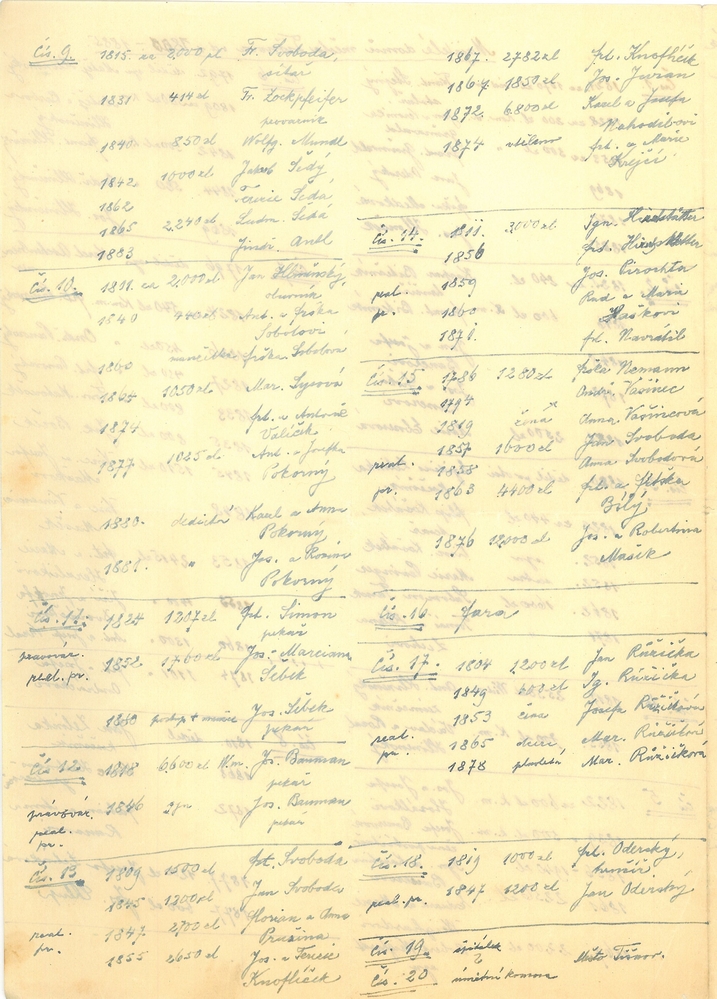 Čís. 9. 1815 za 2000 zl Fr. Svoboda,
sitař
1831 414 zl Fr. Zockpfeifer
provazník
1840 850 zl Wolfg. Mundl
1842 1000 zl Jakub Šedý
1862 Terezie Šedá
1865 2.240 zl Ludm. Šedá
1883 Jindř. Antl
Čís. 10. 1811 za 2.000 zl Jan
1840 440 zl Ant. a Frška
Sobolovi
1860 manželka Frška Sobolova
1864 1050 zl Mar. Lysová
1874 frt. a Antonie
Valíček
1877 1025 zl Ant. a Josefka
Pokorný
1880. dědictví Karel a Anna
Pokorný
1881. " Jos. a Rosina
Pokorný
Čís. 11. 1824 1207 zl frt. Simon
pekař
pravovár.
real. pr. 1852 1760 zl Jos. Marciana
Šebek
1869 Jos. Šebek
pekař
Čís. 12. 1818 6.600 zl W.m. Jos. Bauman
pekař
právovár. 1846 syn Jos. Bauman
real. pekař
pr.
Čís. 13. 1809 1500 zl frt. Svoboda
1845 1200 zl Jan Svoboda
real. 1847 2700 zl Florian a Anna
pr. Pružina
1855 2650 zl Jos. a Terezie
Knoflíček
1867. 2782 zl frt. Knoflíček
1867 1850 zl Jos. Jurian
1872. 6.800 zl Karel a Josefa
Nahodilovi
1874 frt. a Marie
Krejčí
Čís. 14. 1811. 3000 zl Ign. Hirschstätter
1856 frt. Hirschstätter
real. 1859 Jos. Pirochta
pr. 1860 Rud a Maria
Haškovi
1871. frt. Navrátil
Čís. 15 1786 1280 zl frška Nemann
1794 Ondř. Vašinec
1819 žena Anna Vašincová
1857 1600 zl Jan Svoboda
real. 1858 Anna Svobodová
pr. 1863 4400 zl frt. a frška
Bílý
1876 12000 zl Jos. a Robertina
Mašek
Čís. 16. fara
Čís. 17. 1804 1200 zl Jan Růžička
1849 600 zl Ig. Růžička
1853 žena Josefa Růžičková
real. 1865 dceři Mar. Růžičková
pr. 1878 Mar. Růžičková
Čís. 18. 1819 1000 zl frt. Oderský,
real. pr. 1847 1200 zl Jan Oderský
Čís. 19 špitálek Město Tišnov.
Čís. 20 komora